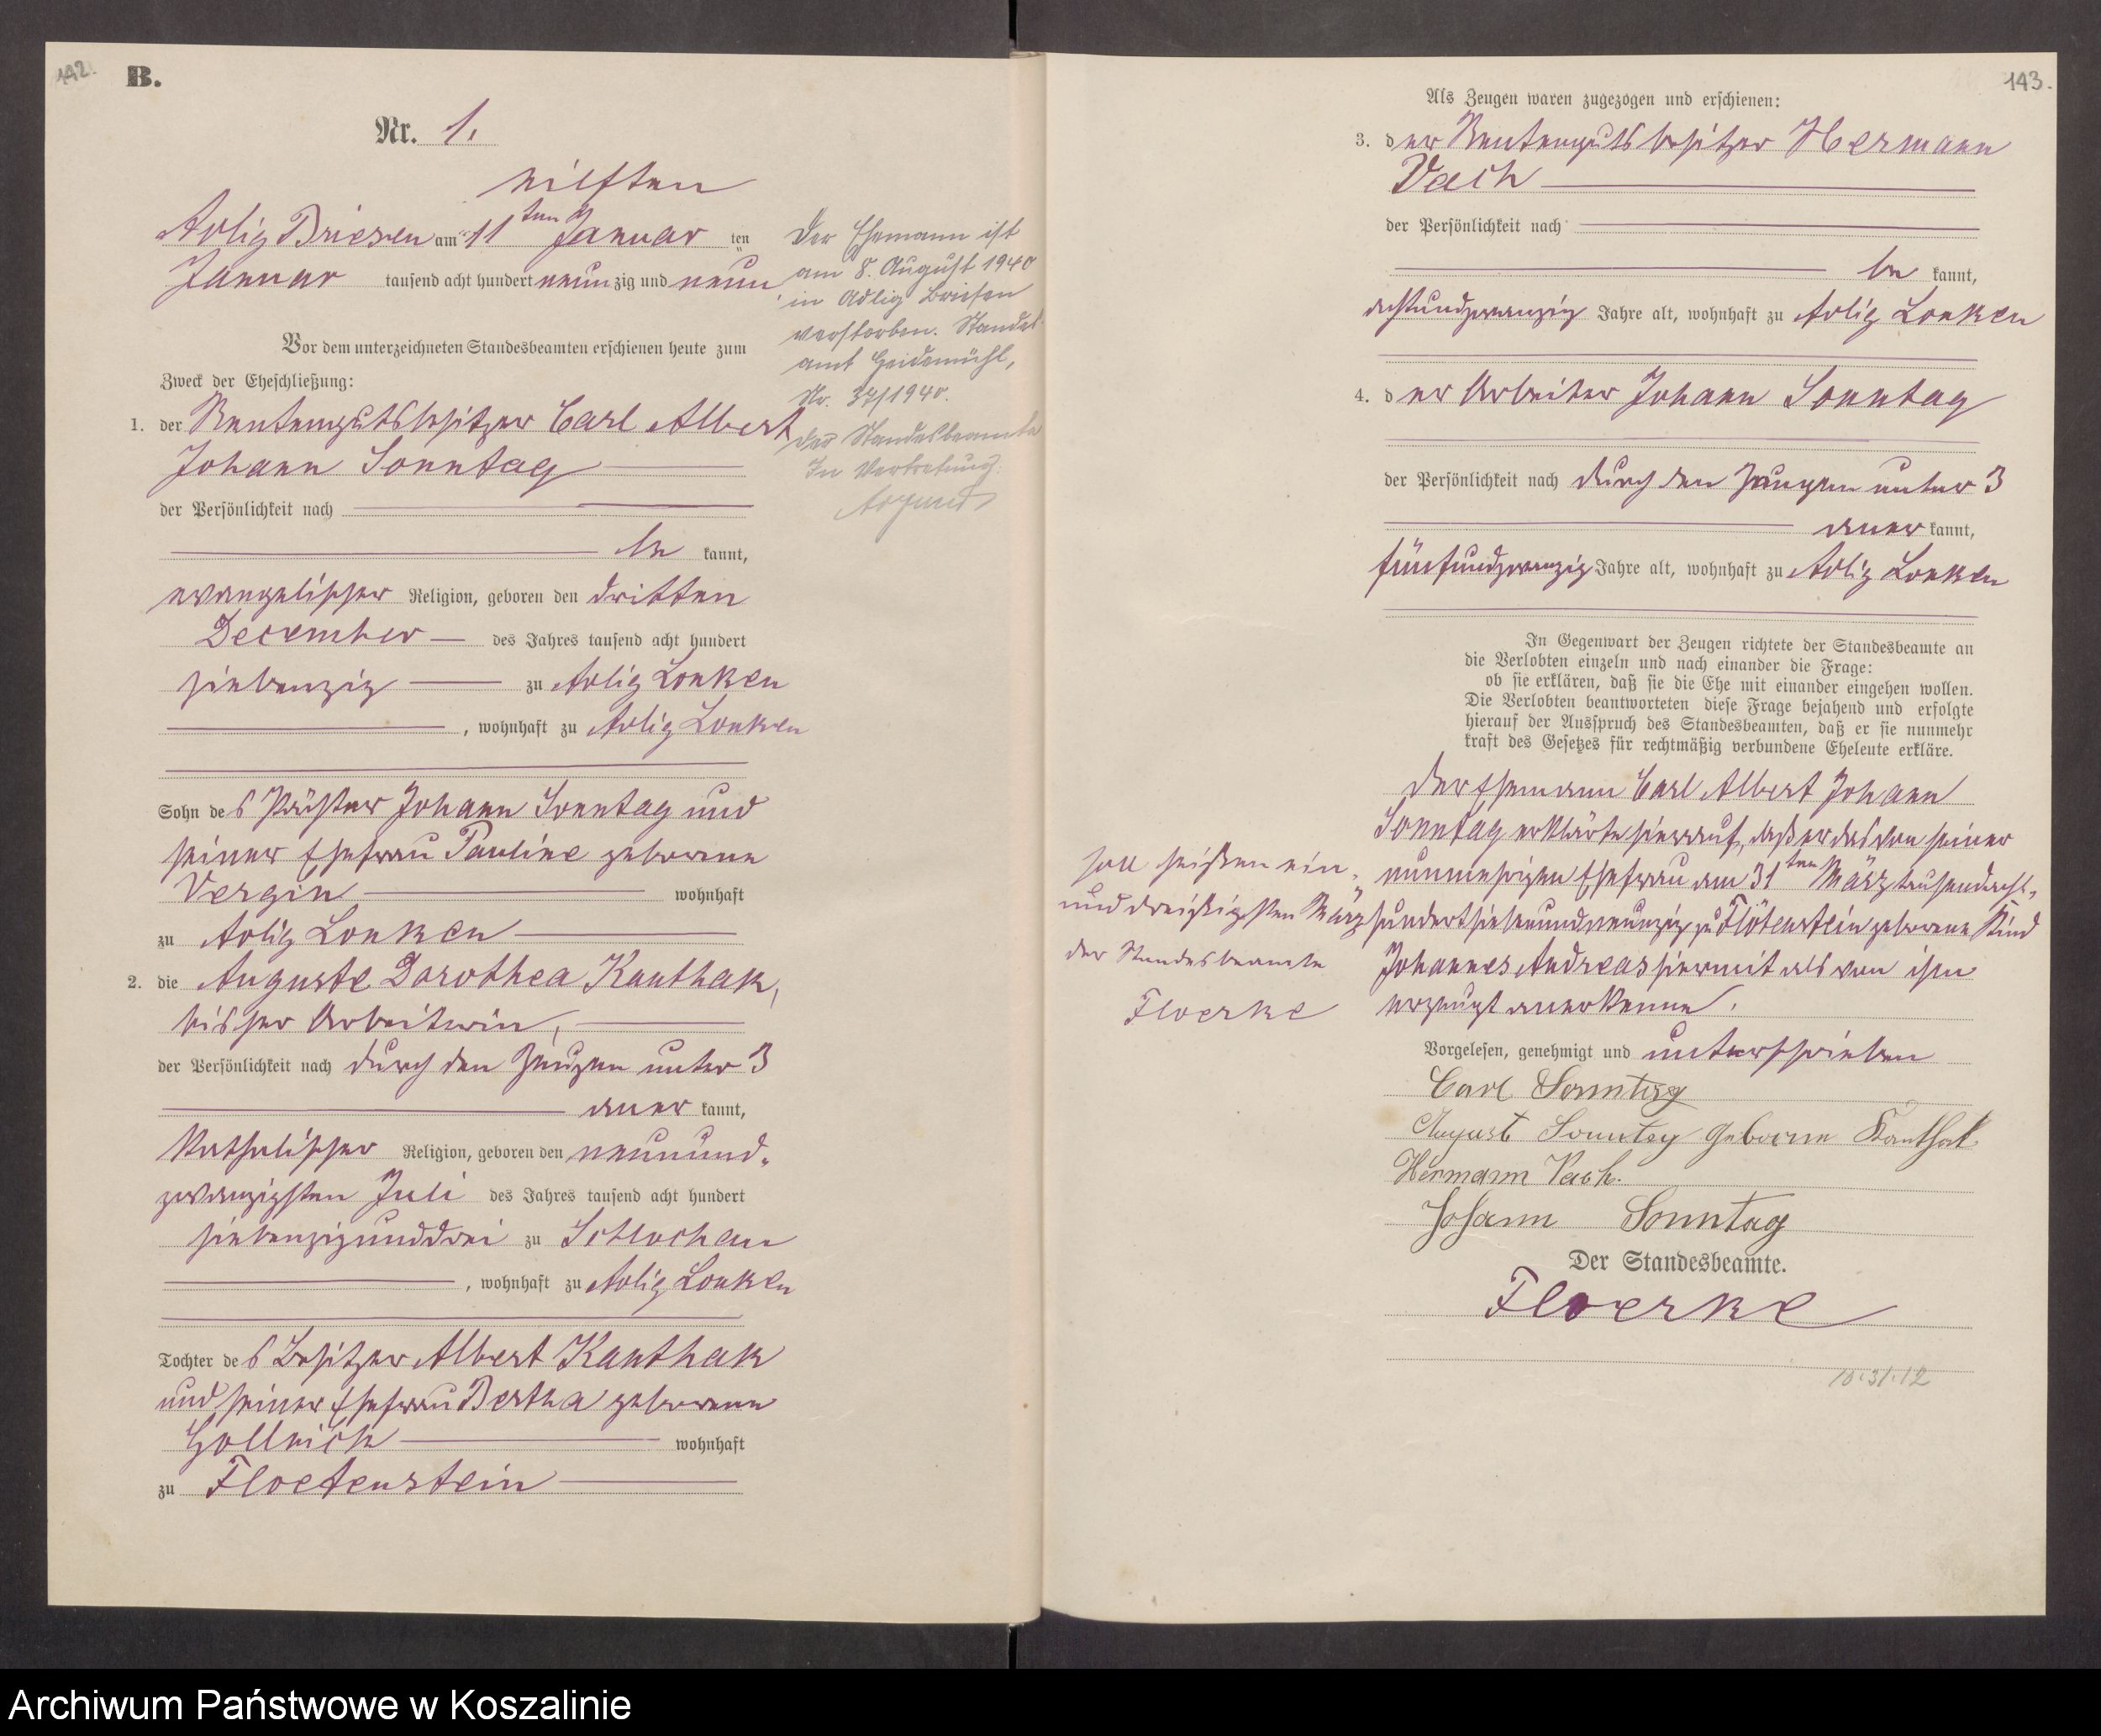 142.
B.
Nr. 1.
eilften
Adlig Briesen am 11ten Januar ten
Januar tausend acht hundert neunzig und neun
Vor dem unterzeichneten Standesbeamten erschienen heute zum
Zweck der Eheschließung:
1. der Rentengutsbesitzer Carl Albert
Johann Sonntag
der Persönlichkeit nach
be kannt,
evangelischer Religion, geboren den dritten
December des Jahres tausend acht hundert
siebenzig zu Adlig Lonken
, wohnhaft zu Adlig Lonken
Sohn des Johann Sonntag und
seiner Ehefrau Pauline geborene
Vergin wohnhaft
zu Adlig Lonken
2. die Auguste Dorothea Kanthak,
bisher Arbeiterin,
der Persönlichkeit nach durch den Zeugen unter 3
aner kannt,
katholischer Religion, geboren den neunund-
zwanzigsten Juli des Jahres tausend acht hundert
siebenzigunddrei zu Schlochau
, wohnhaft zu Adlig Lonken
Tochter des Besitzer Albert Kanthak
und seiner Ehefrau Bertha geborene
Gollnick wohnhaft
zu Floetenstein
Der Ehemann ist
am 8. August 1940
in Adlig Briesen
verstorben. Standes-
amt Heidemühl,
Nr. 37/1940.
Der Standesbeamte
In Vertretung:
143.
Als Zeugen waren zugezogen und erschienen:
3. der Rentengutsbesitzer Hermann
Vach
der Persönlichkeit nach
be kannt,
achtundzwanzig Jahre alt, wohnhaft zu Adlig Lonken
4. der Arbeiter Johann Sonntag
der Persönlichkeit nach durch den Zeugen unter 3
aner kannt,
fünfundzwanzig Jahre alt, wohnhaft zu Adlig Lonken
In Gegenwart der Zeugen richtete der Standesbeamte an
die Verlobten einzeln und nach einander die Frage:
ob sie erklären, daß sie die Ehe mit einander eingehen wollen.
Die Verlobten beantworteten diese Frage bejahend und erfolgte
hierauf der Ausspruch des Standesbeamten, daß er sie nunmehr
kraft des Gesetzes für rechtmäßig verbundene Eheleute erkläre.
Der Ehemann Carl Albert Johann
Sonntag erklärte hierauf, daß er das von seiner
nunmehrigen Ehefrau am 31ten März tausendacht-
hundertsiebenundneunzig zu Flötenstein geborene Kind
Johannes Andreas hiermit als von ihm
erzeugt anerkenne.
soll heißen ein-
unddreißigsten März
der Standesbeamte
Floerke
Vorgelesen, genehmigt und unterschrieben
Carl Sonntag
August Sonntag geborne Kanthak
Hermann Vach.
Johann Sonntag
Der Standesbeamte.
Floerke
10.31.12
Archiwum Państwowe w Koszalinie